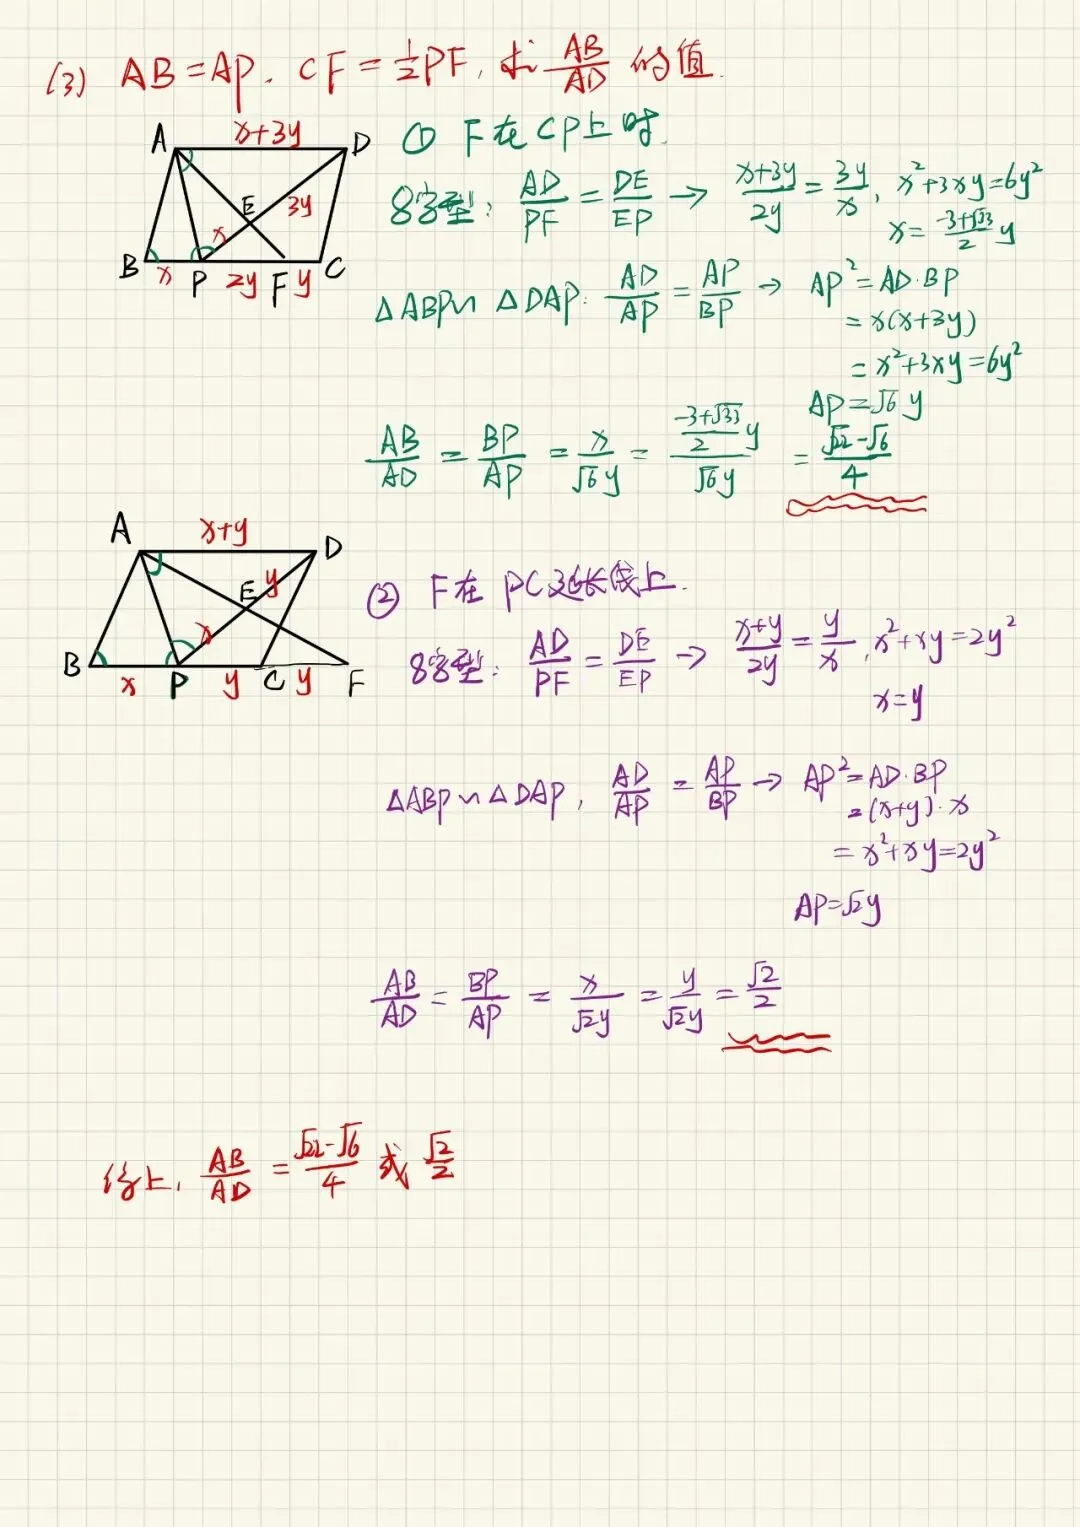 (3) AB=AP. CF=½PF, 求 AB/AD 的值.
A x+3y D
E 3y
x
B x P 2y F y C
① F在CP上时.
8字型: AD/PF = DE/EP → (x+3y)/2y = 3y/x, x²+3xy=6y²
x = (-3+√33)/2 y
△ABP∽△DAP: AD/AP = AP/BP → AP²=AD·BP
= x(x+3y)
= x²+3xy=6y²
AP=√6 y
AB/AD = BP/AP = x/√6y = ((-3+√33)/2 y)/√6y = (√22-√6)/4
A x+y D
E y
x
B x P y C y F
② F在PC延长线上.
8字型: AD/PF = DE/EP → (x+y)/2y = y/x, x²+xy=2y²
x=y
△ABP∽△DAP, AD/AP = AP/BP → AP²=AD·BP
=(x+y)·x
= x²+xy=2y²
AP=√2y
AB/AD = BP/AP = x/√2y = y/√2y = √2/2
综上, AB/AD = (√22-√6)/4 或 √2/2